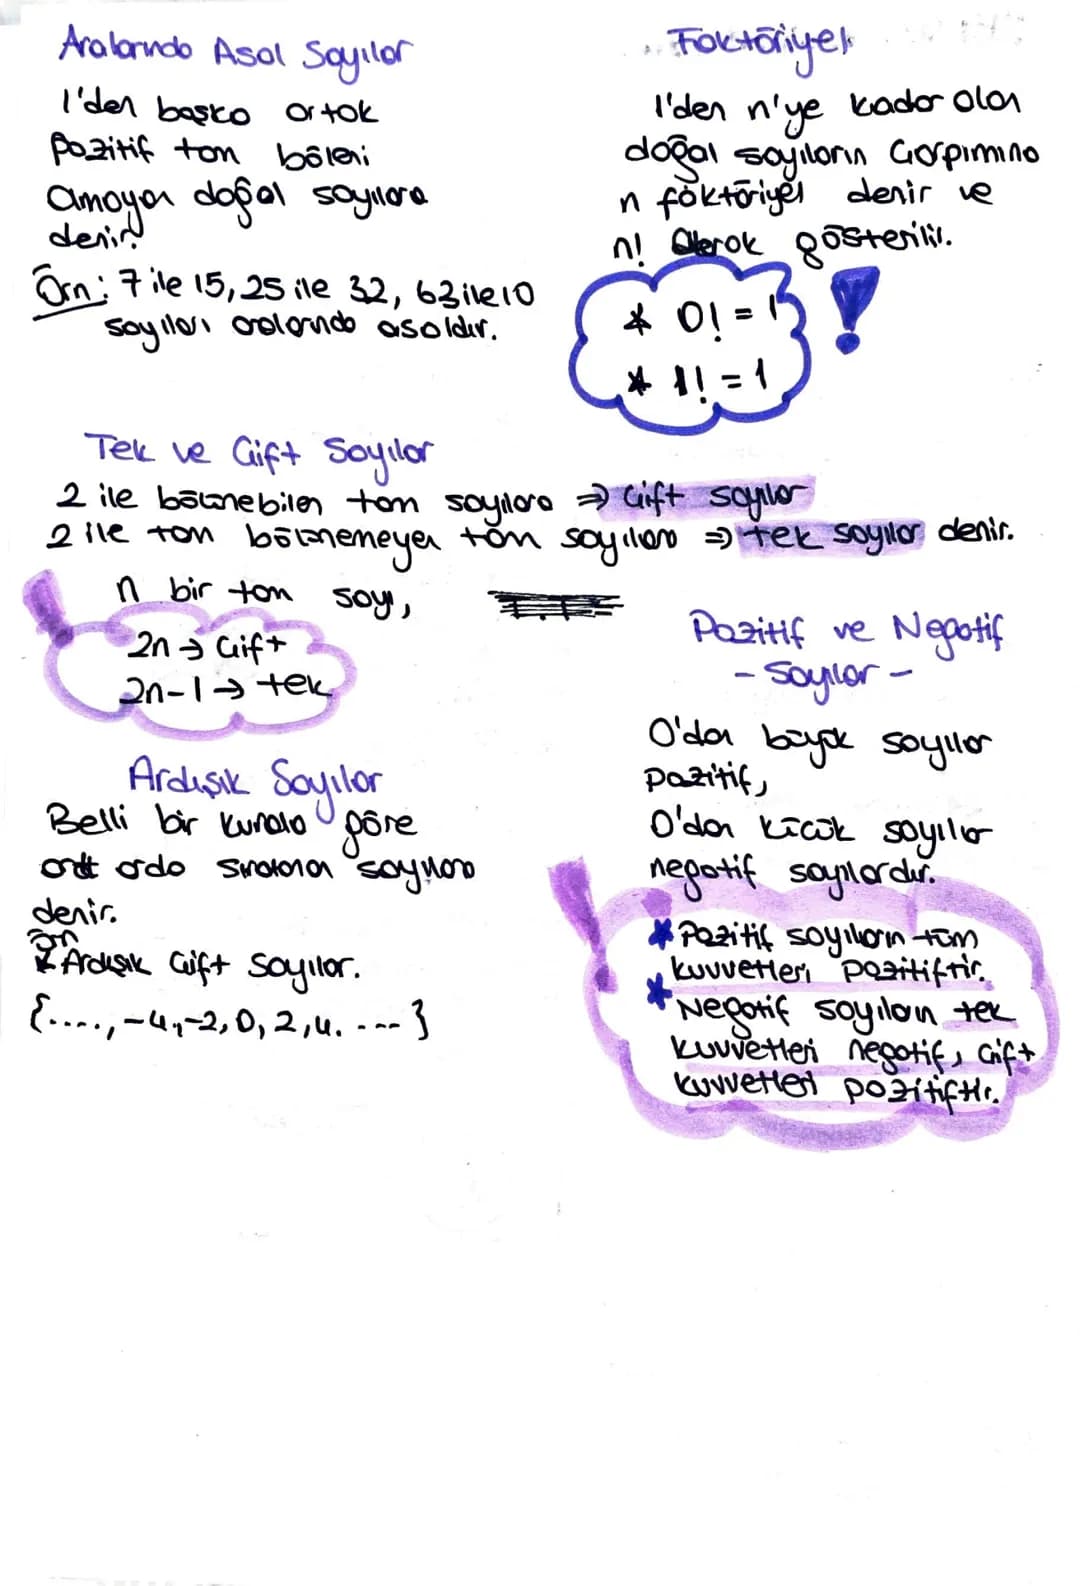 Aralarında Asal Sayılar
1'den başka ortak
pozitif tam böleni
olmayan doğal sayılara
denir.
Örn: 7 ile 15, 25 ile 32, 63 ile 10
sayıları aralarında asaldır.
Faktöriyel
1'den n'ye kadar olan
doğal sayıların Çarpımına
n faktöriyel denir ve
n! olarak gösterilir.
* 0! = 1
* 1! = 1
!
Tek ve Çift Sayılar
2 ile bölünebilen tam sayılara ⇒ Çift sayılar
2 ile tam bölünemeyen tam sayılara ⇒ tek sayılar denir.
n bir tam sayı,
!
2n → Çift
2n-1 → tek
Ardışık Sayılar
Belli bir kurala göre
art arda sıralanan sayılara
denir.
Örn
Ardışık Çift Sayılar.
{...., -4, -2, 0, 2, 4. ---}
Pozitif ve Negatif
- Sayılar -
0'dan büyük sayılar
pozitif,
0'dan küçük sayılar
negatif sayılardır.
!
* Pozitif sayıların tüm
kuvvetleri pozitiftir.
* Negatif sayıların tek
kuvvetleri negatif, Çift
kuvvetleri pozitiftir.